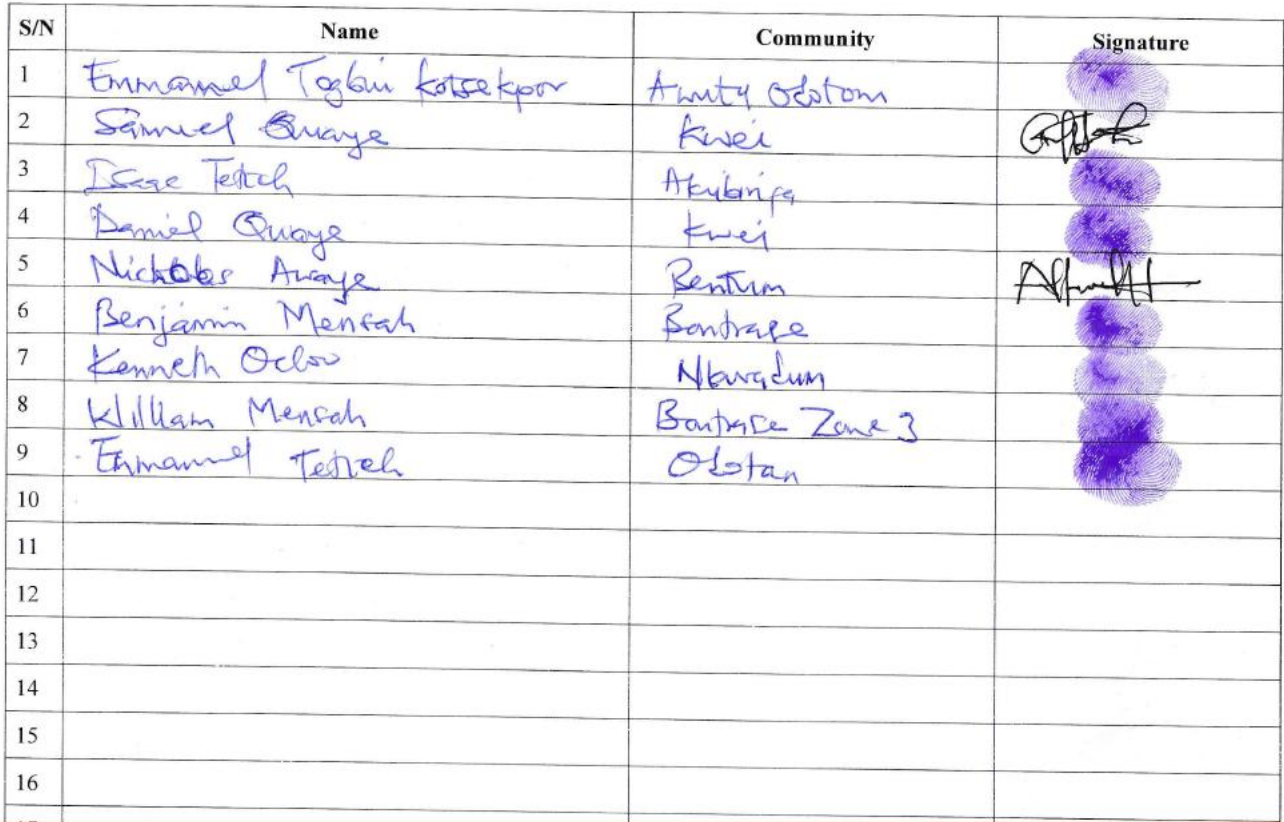 S/N Name Community Signature
1 Emmanuel Togbui Kotsekpor Awutu Odotom
2 Samuel Quaye Kwei
3 Isaac Tetteh
4 Daniel Quaye Kwei
5 Nicholas Awaye Bentum
6 Benjamin Mensah Bontrase
7 Kenneth Ocloo
8 William Mensah Bontrase Zone 3
9 Emmanuel Tetteh Odotan
10
11
12
13
14
15
16